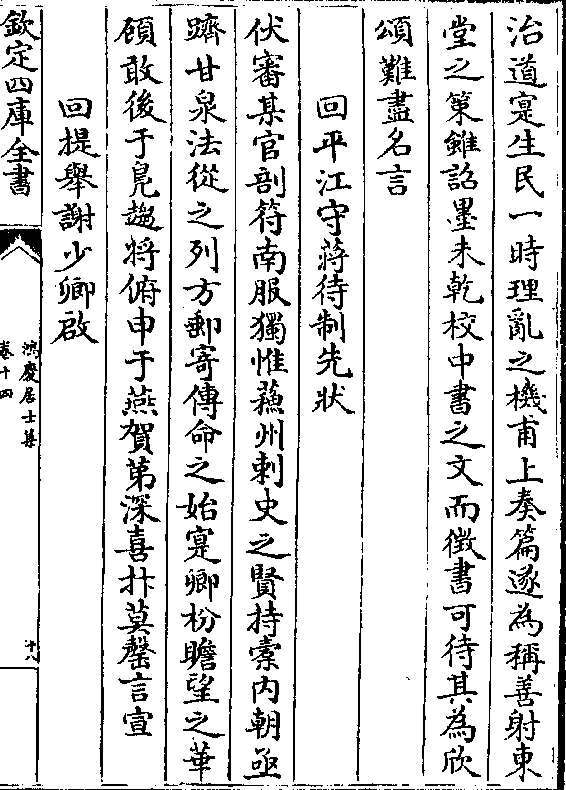 治道寔生民一時理亂之機甫上奏篇遂為稱善射東
堂之策雖詔墨未乾校中書之文而徴書可待其為欣
頌難盡名言
回平江守蔣待制先狀
伏審某官剖符南服獨惟蘓州刺史之賢持橐内朝亟
躋甘泉法從之列方郵寄傳命之始寔鄉枌瞻望之華
頋敢後于凫趨将俯申于燕賀苐深喜抃莫罄言宣
回提舉謝少卿啟
欽定四庫全書
鴻慶居士集
卷十四
十八